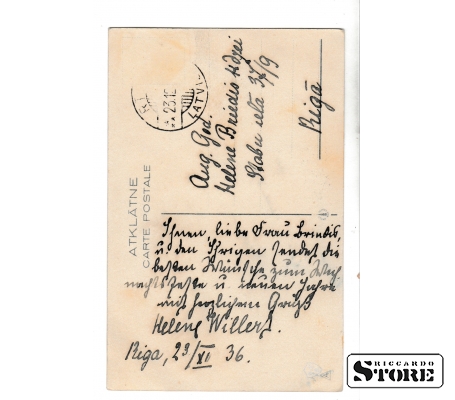 ATKLĀTNE
CARTE POSTALE
23.12
LATVI
Aug. God.
Helene Briedis kdzei
Stabu iela
Rīgā
Ihnen, liebe Frau Briedis,
u. den Ihrigen sendet die
besten Wünsche zum Weih-
nachtsfeste u. neuen Jahre
mit herzlichem Gruß
Helene Willert.
Riga, 23/XI 36.
RICCARDO
STORE